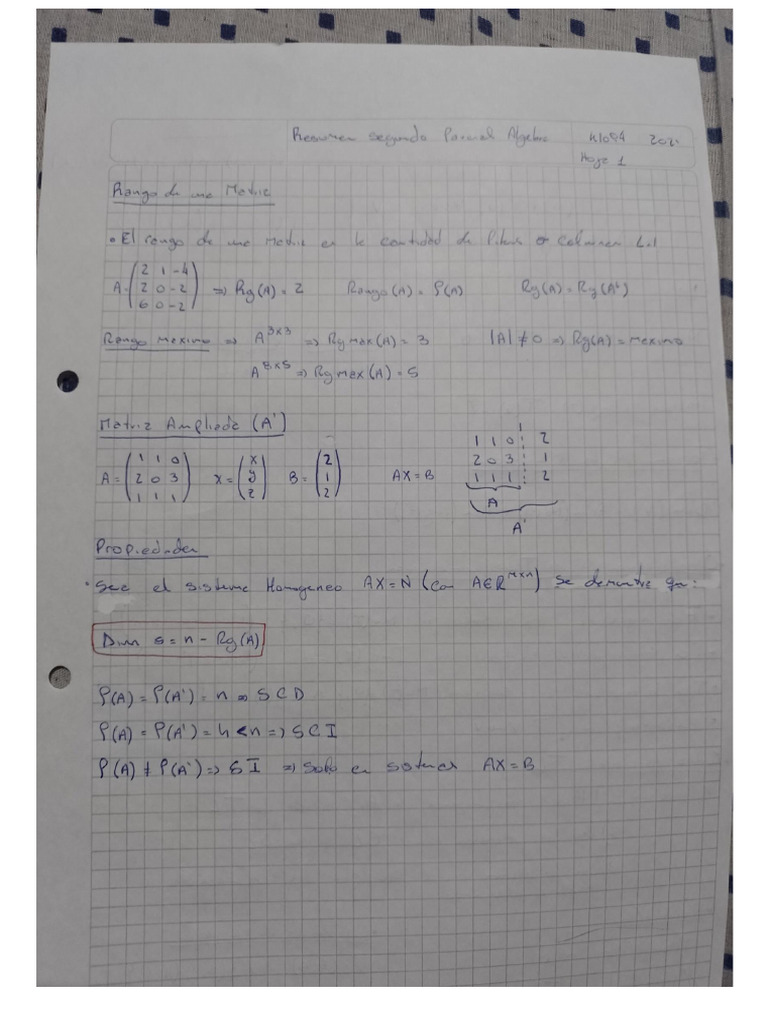 Resumen segundo Parcial Algebra K1054 202
Hoja 1
Rango de una Matriz
• El rango de una matriz es la cantidad de Filas o Columnas L.I
A = (2 1 -4 / 2 0 -2 / 6 0 -2) => Rg(A) = 2 Rango(A) = ρ(A) Rg(A) = Rg(Aᵗ)
Rango Maximo => A³ˣ³ => Rg max(A) = 3 |A| ≠ 0 => Rg(A) = maximo
A⁸ˣ⁵ => Rg max(A) = 5
Matriz Ampliada (A')
A = (1 1 0 / 2 0 3 / 1 1 1) X = (x / y / z) B = (2 / 1 / 2) AX = B
1 1 0 ¦ 2
2 0 3 ¦ 1
1 1 1 ¦ 2
A
A'
Propiedades
• Sea el sistema Homogeneo AX = N (con A∈Rᵐˣⁿ) se demuestra que:
Dim S = n - Rg(A)
ρ(A) = ρ(A') = n => SCD
ρ(A) = ρ(A') = h < n => SCI
ρ(A) ≠ ρ(A') => SI => Solo en sistemas AX = B